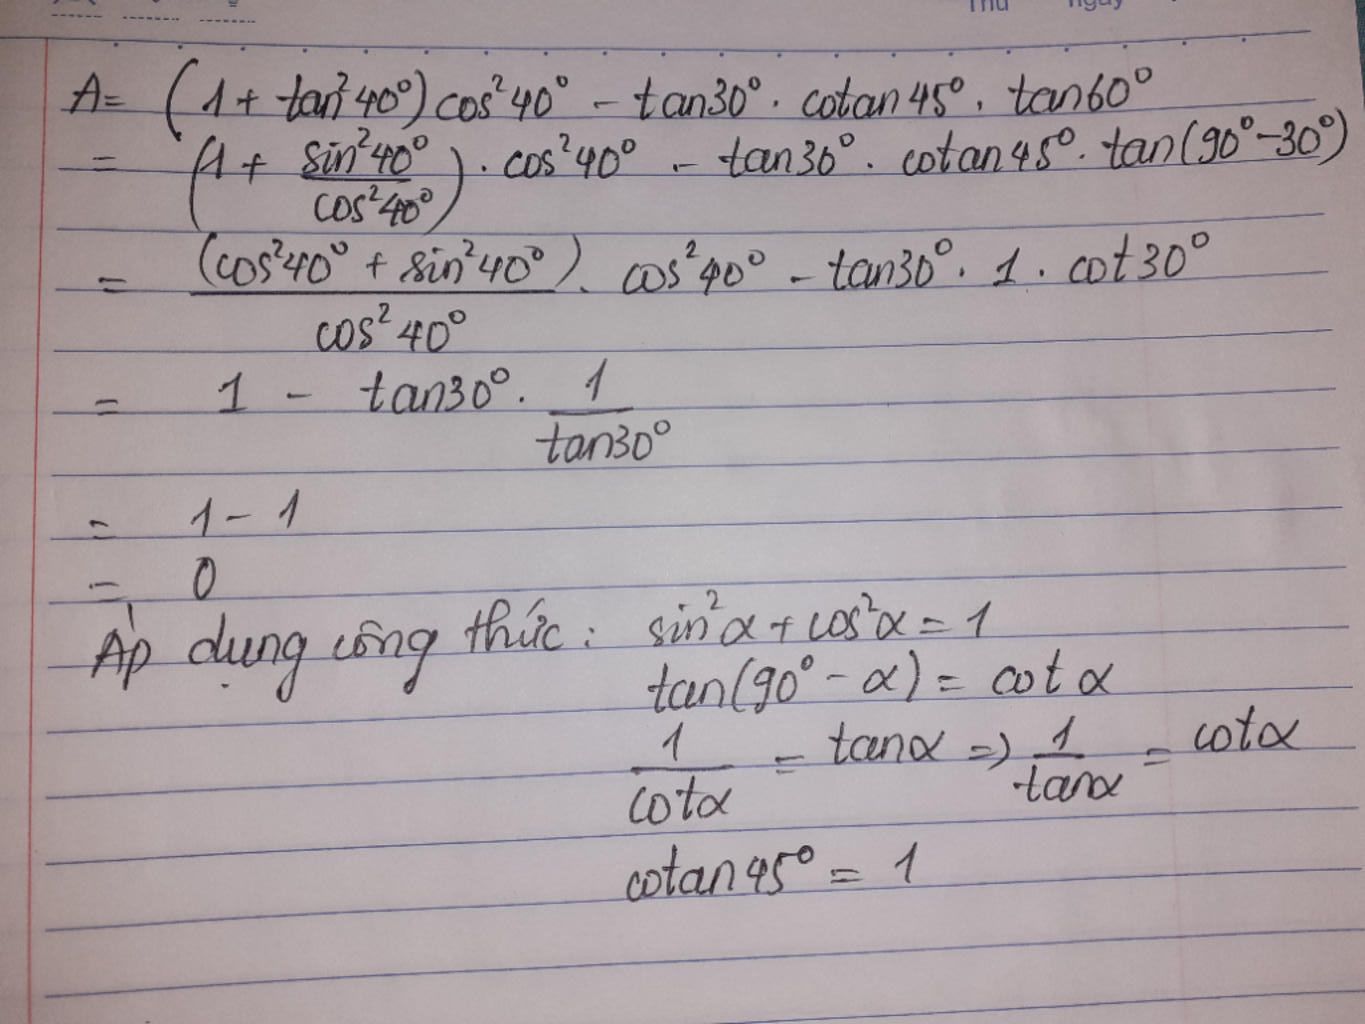 Thứ ngày
A = (1 + tan²40°) cos²40° - tan30° . cotan45° . tan60°
= (1 + sin²40° / cos²40°) . cos²40° - tan30° . cotan45° . tan(90° - 30°)
= (cos²40° + sin²40°) / cos²40° . cos²40° - tan30° . 1 . cot30°
= 1 - tan30° . 1 / tan30°
= 1 - 1
= 0
Áp dụng công thức : sin²α + cos²α = 1
tan(90° - α) = cot α
1 / cotα = tanα => 1 / tanα = cotα
cotan45° = 1